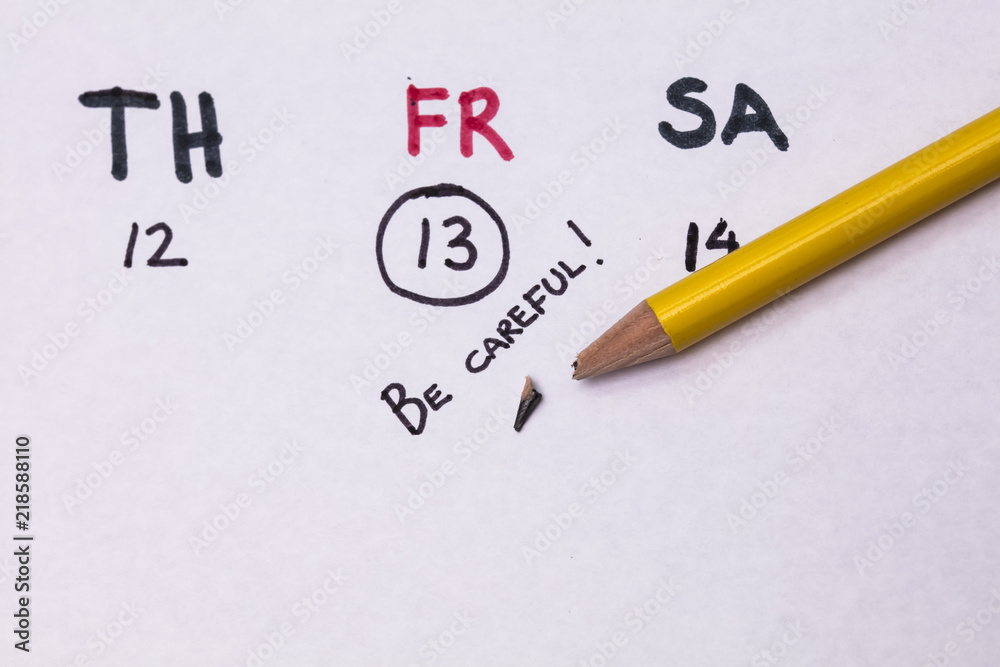 TH FR SA
12 13 14
BE CAREFUL!
Adobe Stock | #218588110